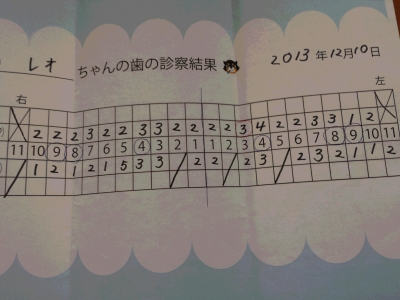 レオ ちゃんの歯の診察結果 2013年12月10日
右 左
2 2 2 3 2 2 3 3 2 2 2 2 3 4 2 2 3 3 1 2
11 10 9 8 7 6 5 4 3 2 1 1 2 3 4 5 6 7 8 9 10 11
1 2 1 2 1 5 3 3 2 2 2 3 2 3 2 1 1 2